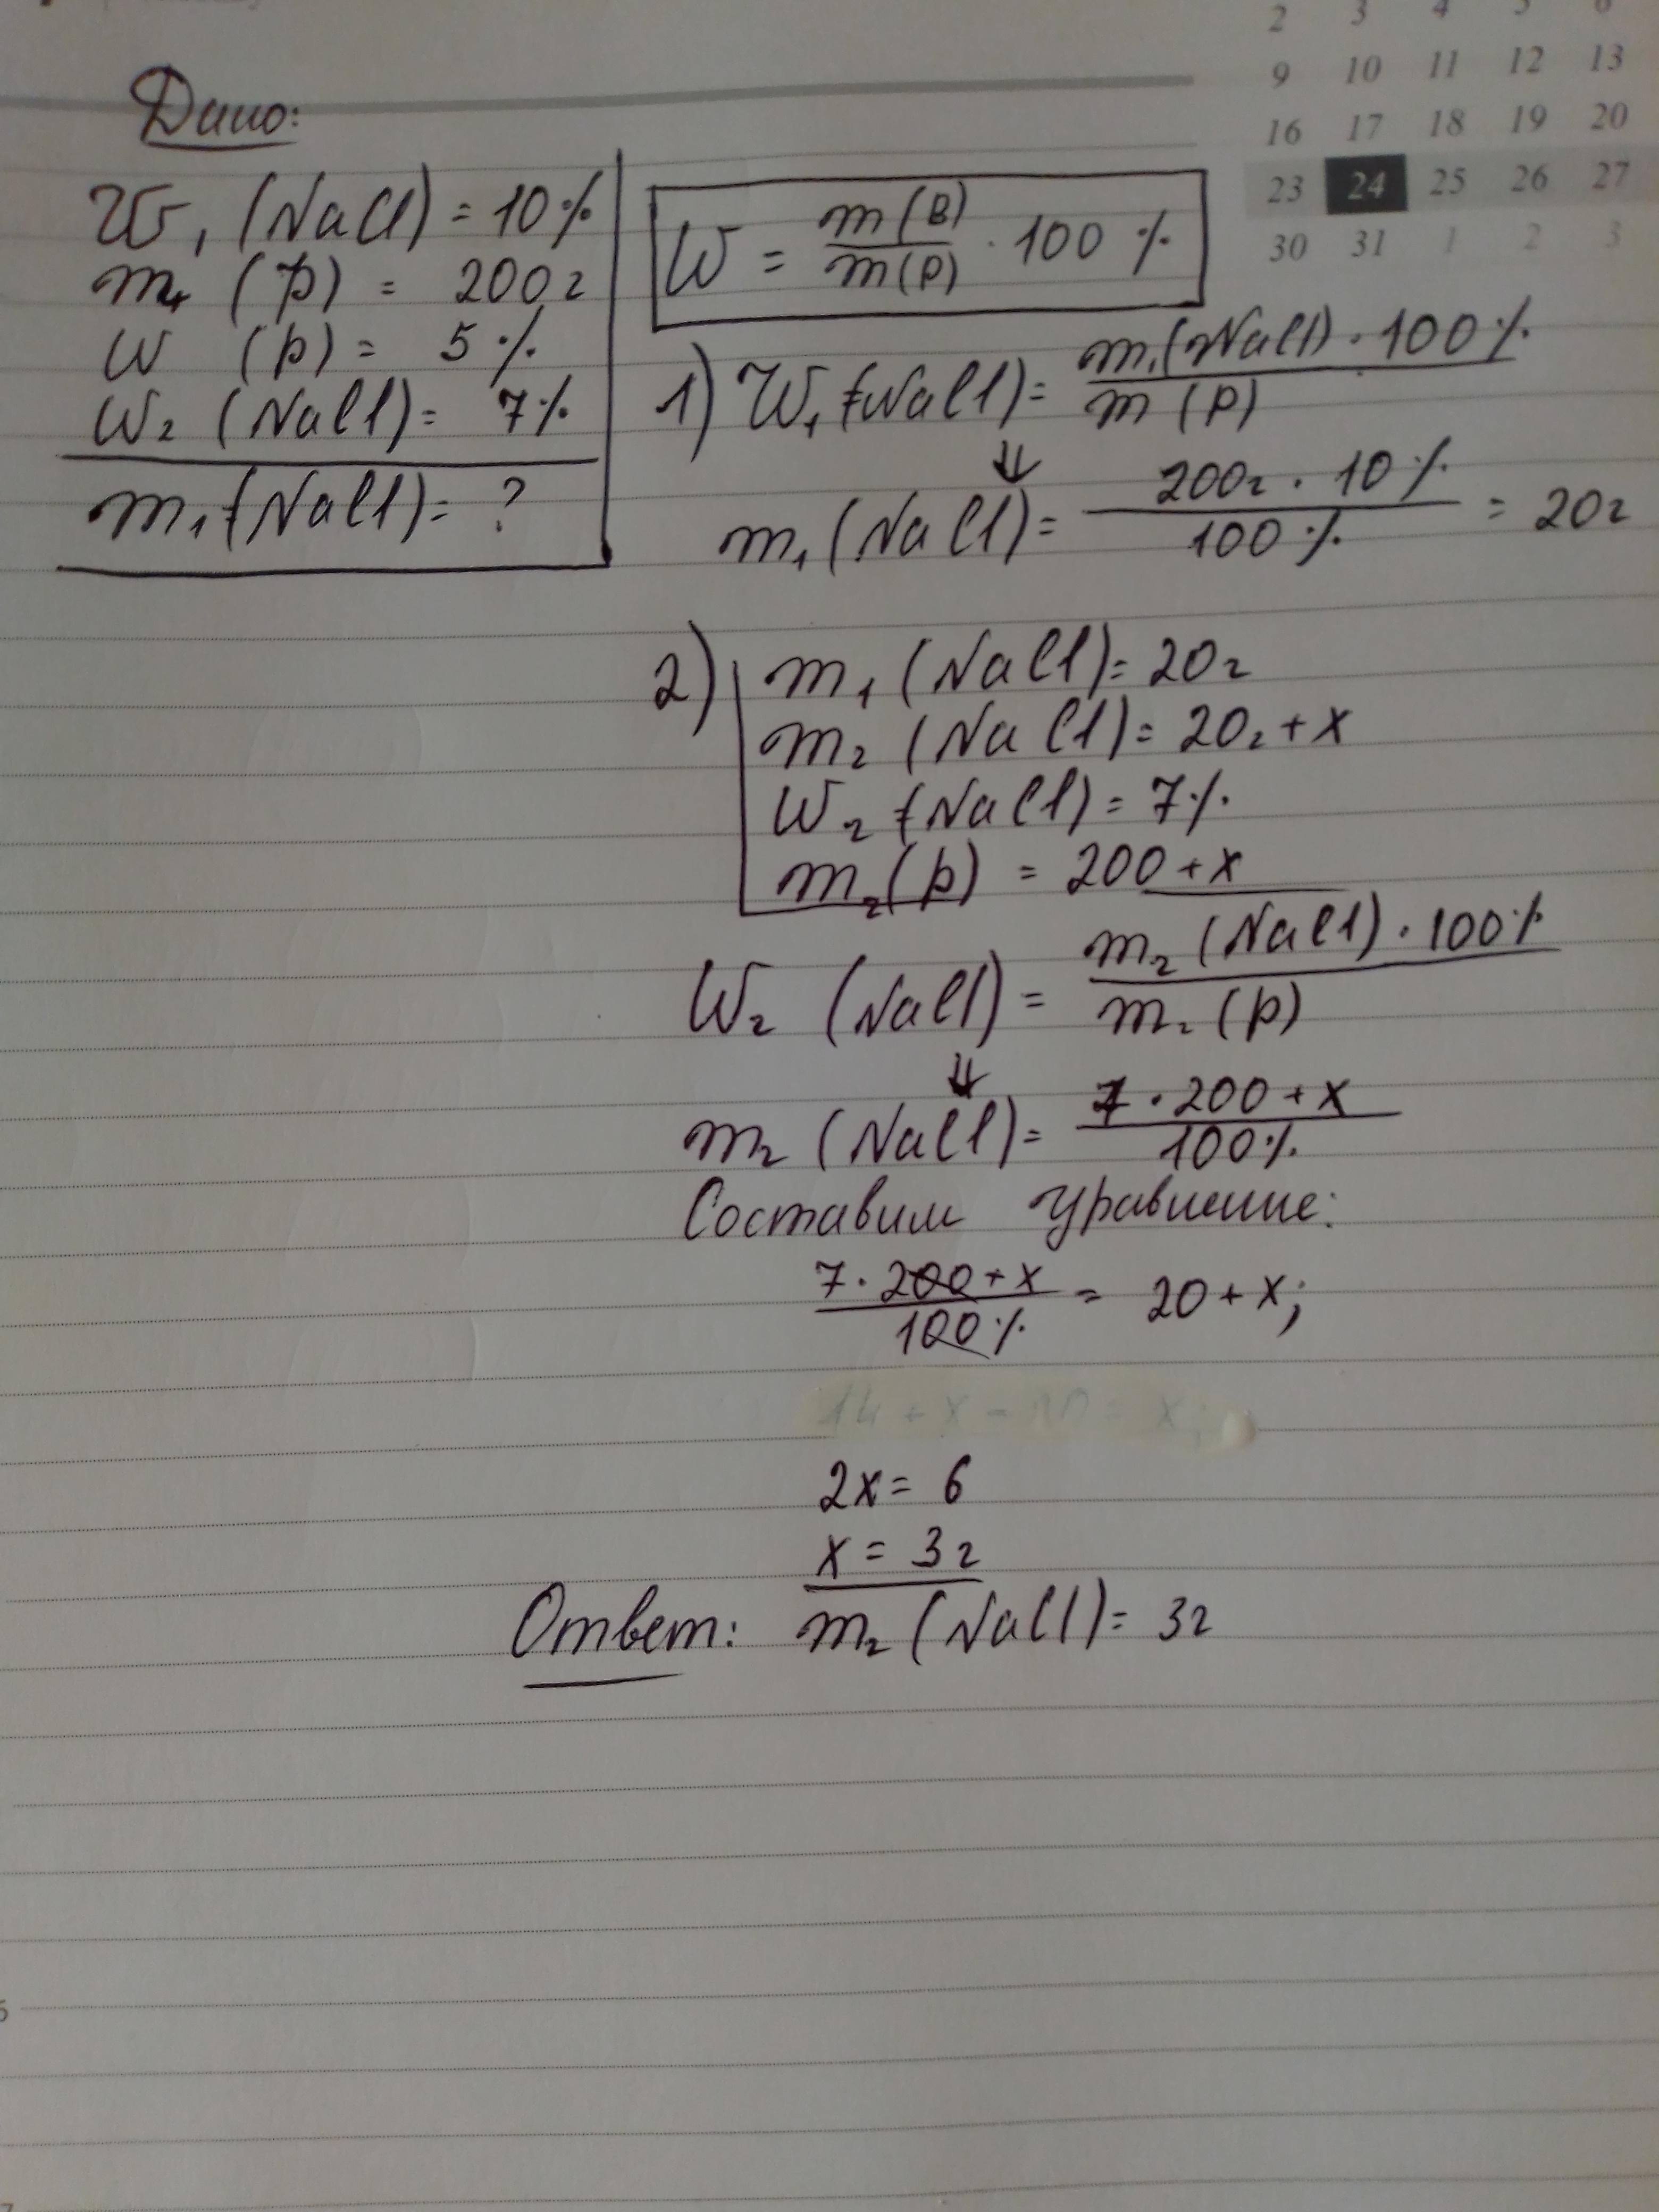 2 3 4 5 6
9 10 11 12 13
16 17 18 19 20
23 24 25 26 27
30 31 1 2 3
Дано:
W₁ (NaCl) = 10%
m₁ (р) = 200г
W (р) = 5%
W₂ (NaCl) = 7%
m₁ (NaCl) = ?
W = m(В)/m(р) · 100 %
1) W₁ (NaCl) = m₁(NaCl) · 100%/m (р)
m₁ (NaCl) = 200г · 10%/100% = 20г
2) m₁ (NaCl) = 20г
m₂ (NaCl) = 20г + x
W₂ (NaCl) = 7%
m₂ (р) = 200 + x
W₂ (NaCl) = m₂ (NaCl) · 100%/m₂ (р)
m₂ (NaCl) = 7 · 200 + x/100%
Составим уравнение:
7 · 200 + x/100% = 20 + x;
2x = 6
x = 3г
Ответ: m₂ (NaCl) = 3г